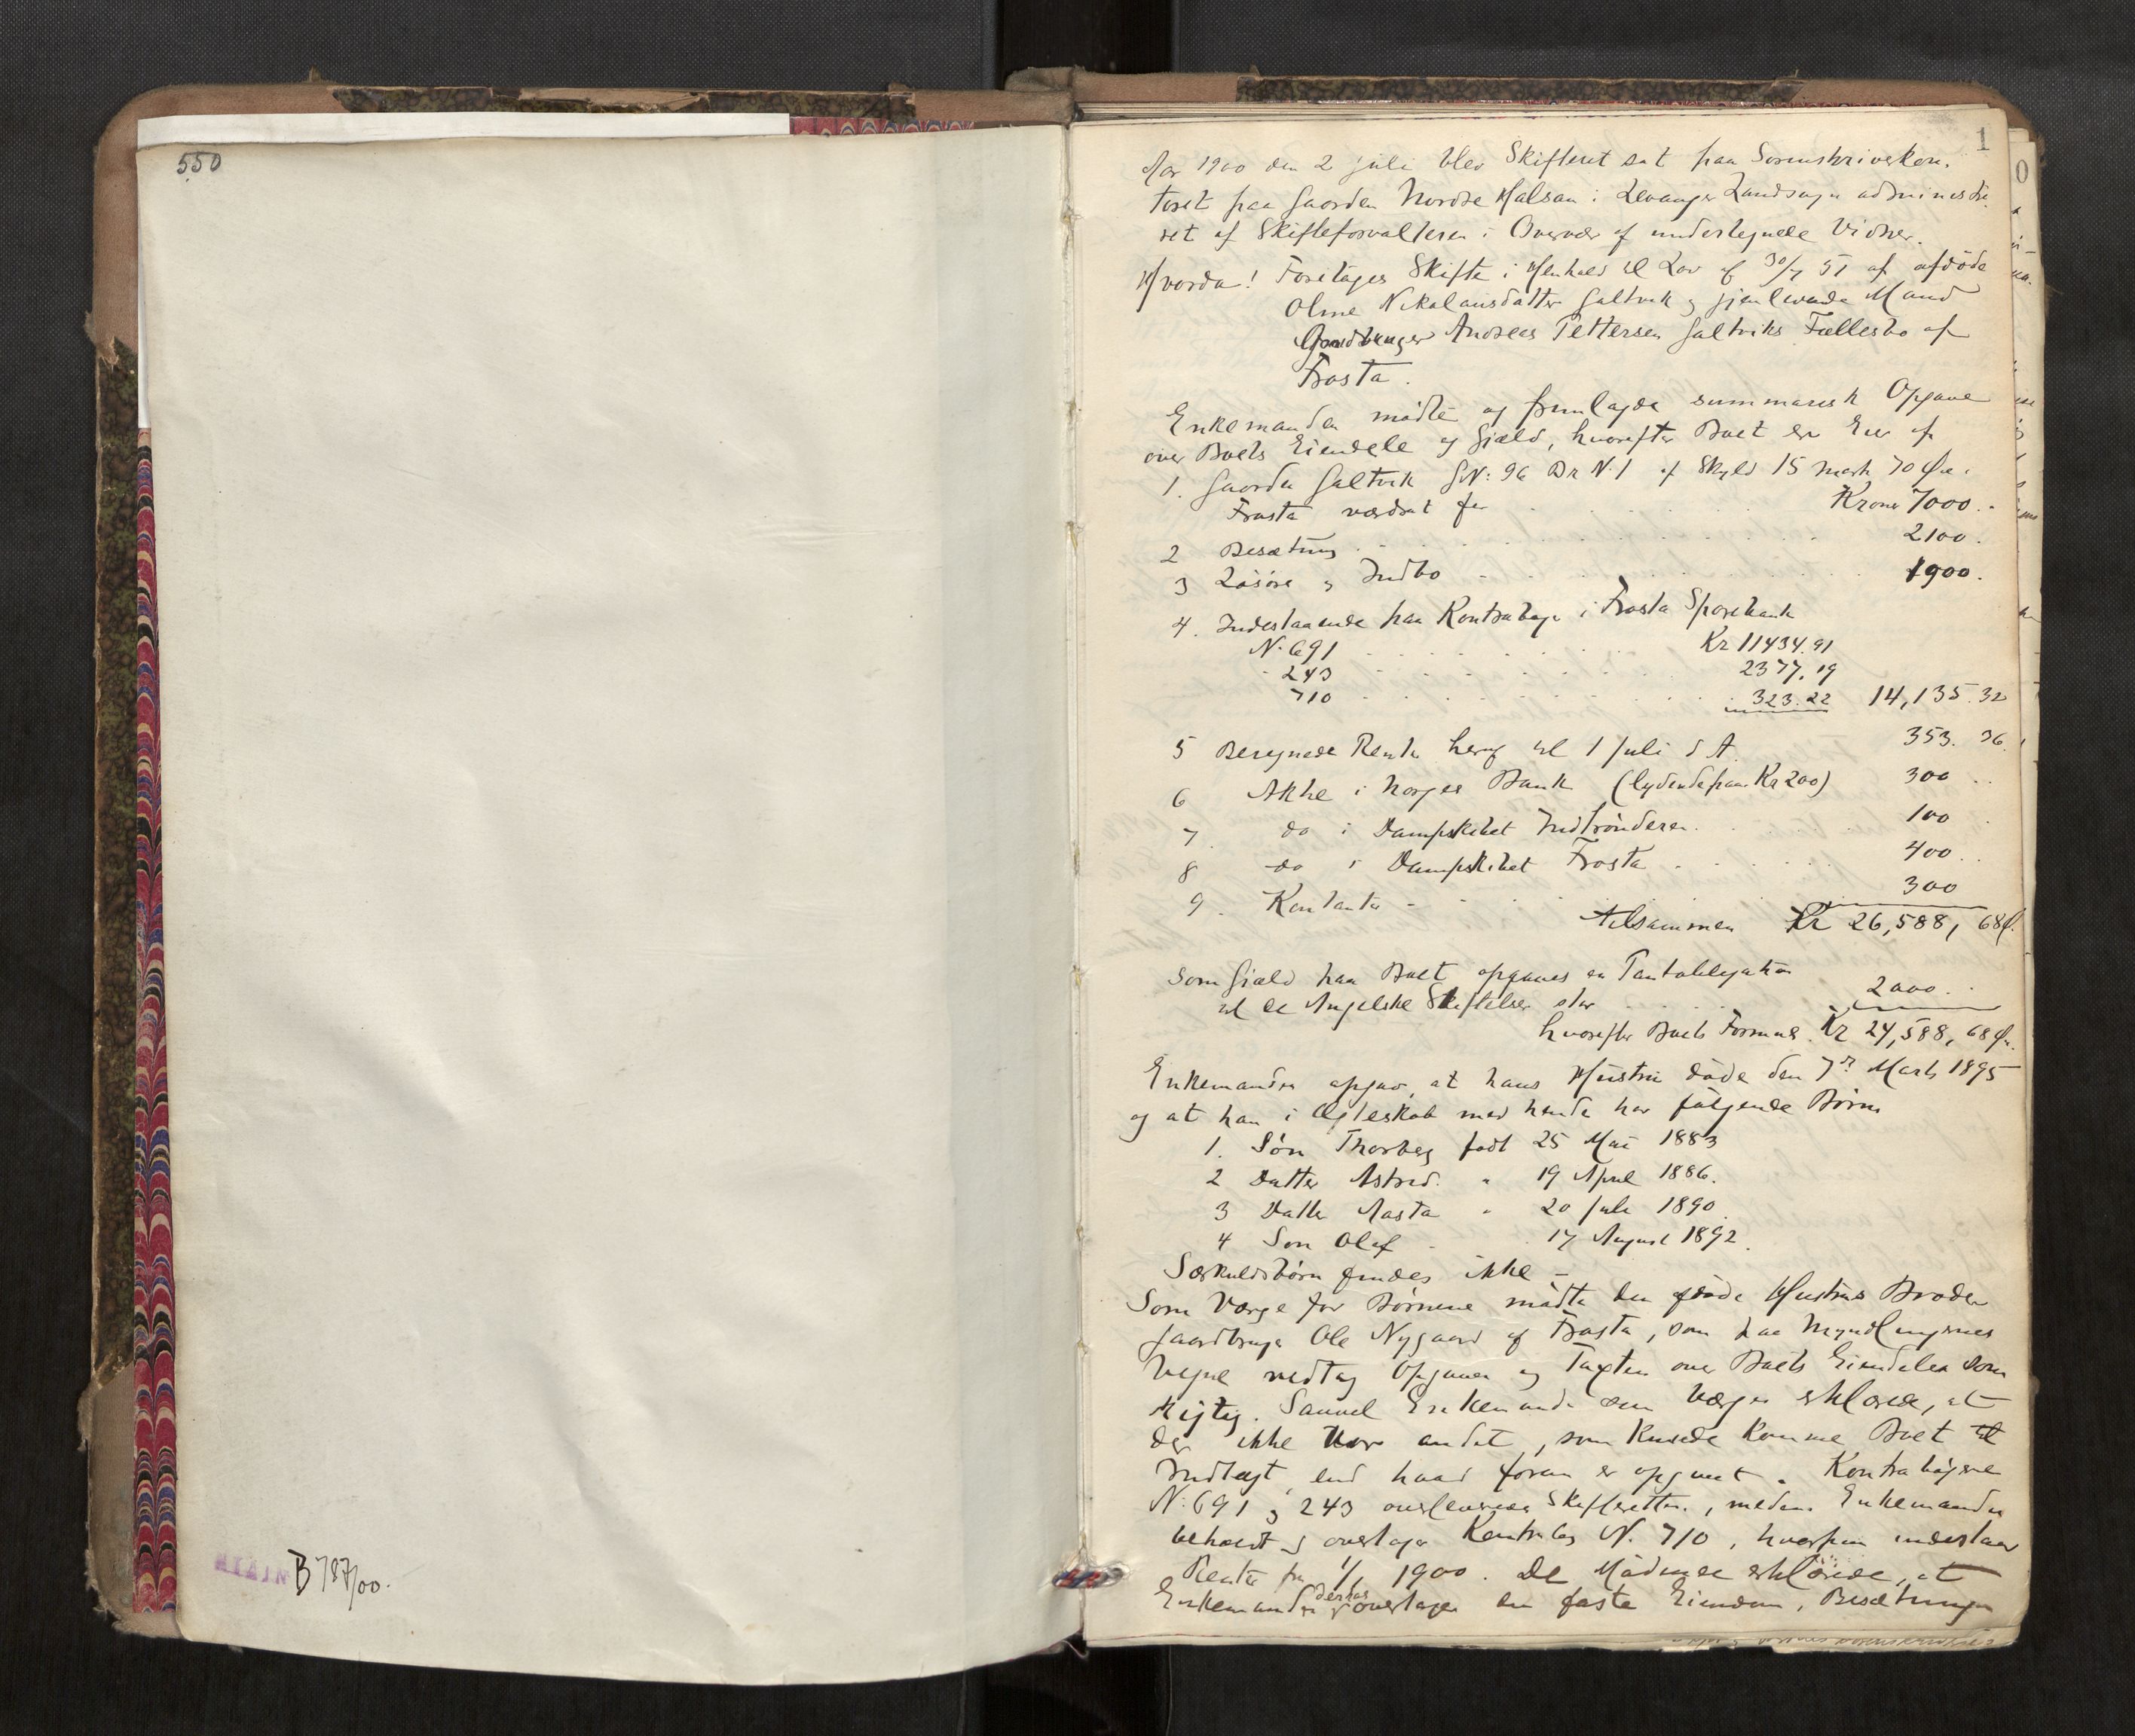 550
B 787/00.
1
Aar 1900 den 2 juli blev Skifteret sat paa Sorenskriverkon-
toret paa Gaarden Nordre Halsan i Levanger Landsogn administre-
ret af Skifteforvalteren i Overvær af undertegnede Vidner.
Hvorda! Foretages Skifte i Henhold til Lov af 30/7 51 af afdøde
Oline Nikolausdatter Galtvik og gjenlevende Mand
Gaardbruger Andreas Pettersen Galtviks Fællesbo af
Frosta.
Enkemanden mødte og fremlagde summarisk Opgave
over Boets Eiendele og Gjæld, hvorefter Boet er Eier af
1. Gaarden Galtvik GN: 96 Br N. 1 af Skyld 15 mark 70 Øre i
Frosta værdsat for Kroner 7000.-
2 Besætning 2100.
3 Løsøre og Indbo 1900.
4. Indestaaende paa Kontrabøger i Frosta Sparebank
N. 691 Kr 11434.91
- 243 2377.19
710 323.22 14,135.32
5 Beregnede Renter heraf til 1 Juli d A 353. 36.
6 Aktie i Norges Bank (lydende paa Kr 200) 300
7. do i Dampskibet Indtrønderen. 100
8 do i Dampskibet Frosta 400..
9. Kontanter 300
tilsammen Kr 26,588, 68 Ø.
Som Gjæld paa Boet opgaves en Panteobligation
til de Angelske Stiftelser stor 2000..
hvorefter Boets Formue Kr 24,588, 68 Ør.
Enkemanden opgav, at hans Hustru døde den 7de Marts 1895
og at han i Ægteskab med hende har følgende Børn
1. Søn Thorberg født 25 Mai 1883
2 Datter Astrid. " 19 April 1886.
3 Datter Aasta " 20 Juli 1890.
4 Søn Olaf - 17 August 1892.
Særkuldsbørn findes ikke -
Som Værge for Børnene mødte den afdøde Hustrus Broder
Gaardbruger Ole Nygaard af Frosta, som paa Myndlingernes
Vegne vedtog Opgaven og Taxten over Boets Eiendeler som
rigtig. Saavel Enkemanden som Værgen erklærede, at
der ikke var andet, som kunde komme Boet til
Indtægt, end hvad foran er opgivet. Kontrabøgerne
N: 691 og 243 overleveres Skifteretten, medens Enkemanden
beholdt og overtager Kontrabog N. 710, hvorpaa indestaar
Renter fra 1/1 1900. De Mødende erklærede, at
Enkemanden derhos overtager den faste Eiendom, Besætningen